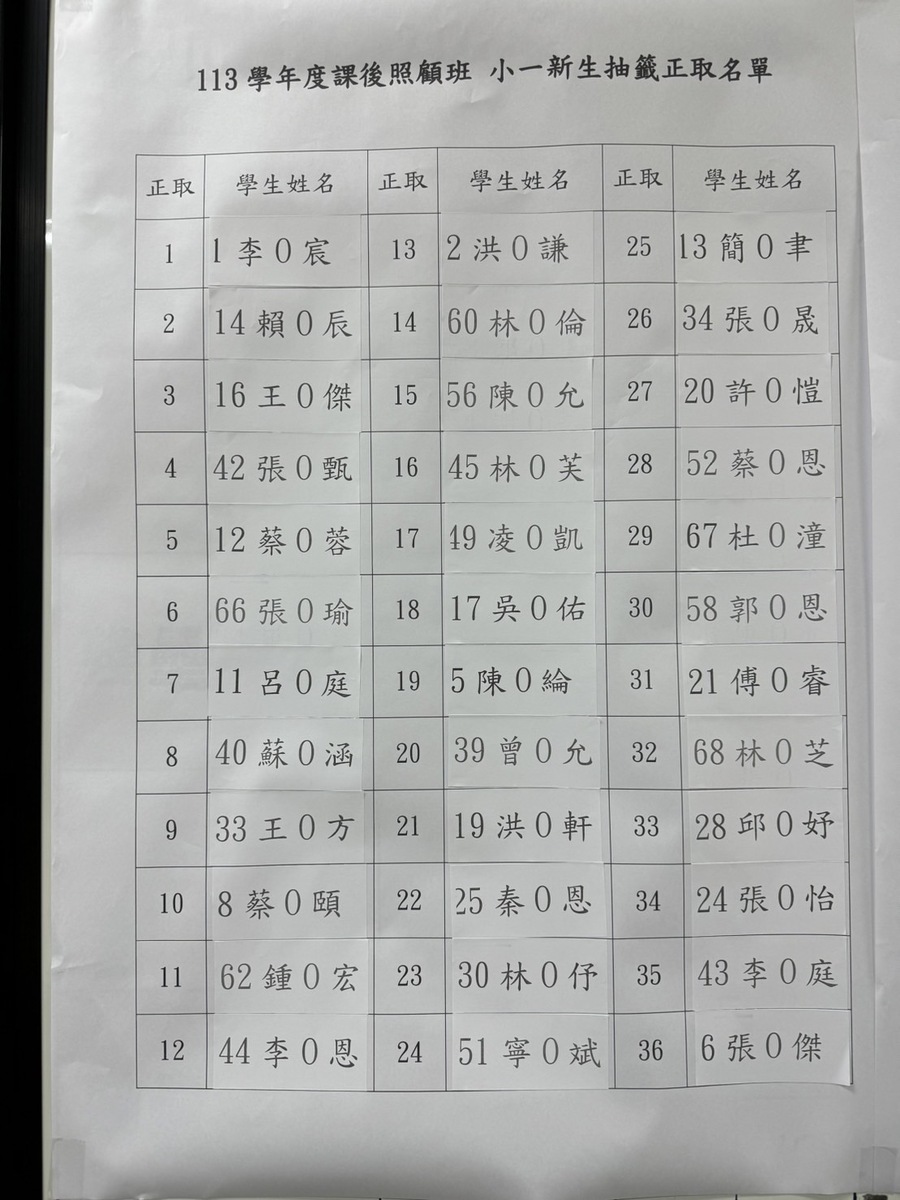 113 學年度課後照顧班 小一新生抽籤正取名單
正取 學生姓名 正取 學生姓名 正取 學生姓名
1 1 李 O 宸 13 2 洪 O 謙 25 13 簡 O 聿
2 14 賴 O 辰 14 60 林 O 倫 26 34 張 O 晟
3 16 王 O 傑 15 56 陳 O 允 27 20 許 O 愷
4 42 張 O 甄 16 45 林 O 芙 28 52 蔡 O 恩
5 12 蔡 O 蓉 17 49 凌 O 凱 29 67 杜 O 潼
6 66 張 O 瑜 18 17 吳 O 佑 30 58 郭 O 恩
7 11 呂 O 庭 19 5 陳 O 綸 31 21 傅 O 睿
8 40 蘇 O 涵 20 39 曾 O 允 32 68 林 O 芝
9 33 王 O 方 21 19 洪 O 軒 33 28 邱 O 妤
10 8 蔡 O 頤 22 25 秦 O 恩 34 24 張 O 怡
11 62 鍾 O 宏 23 30 林 O 伃 35 43 李 O 庭
12 44 李 O 恩 24 51 寧 O 斌 36 6 張 O 傑